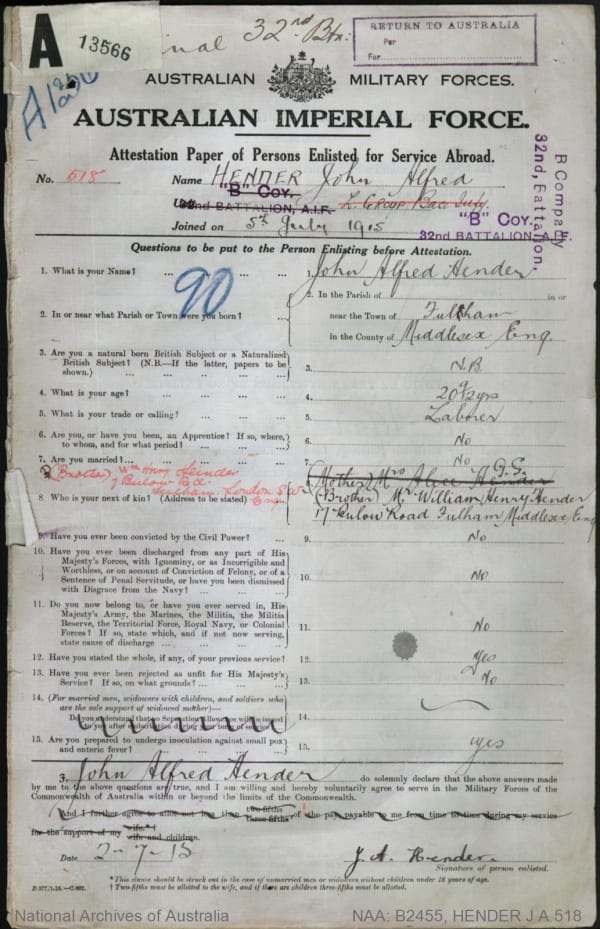 A 13566
32nd Btn:
RETURN TO AUSTRALIA
Per
For
AUSTRALIAN MILITARY FORCES.
AUSTRALIAN IMPERIAL FORCE.
Attestation Paper of Persons Enlisted for Service Abroad.
No. 518 Name HENDER John Alfred
"B" COY.
32nd BATTALION, A.I.F.
Joined on 5th July 1915
"B" COY.
32ND BATTALION, A.I.F.
B Company
32nd. Battalion.
Questions to be put to the Person Enlisting before Attestation.
1. What is your Name? ... ... ... ... 1. John Alfred Hender
90
2. In or near what Parish or Town were you born? ... 2. In the Parish of in or
near the Town of Fulham
in the County of Middlesex Eng.
3. Are you a natural born British Subject or a Naturalized
British Subject? (N.B.—If the latter, papers to be
shown.) ... 3. N.B.
4. What is your age? ... 4. 20 9/12 yrs
5. What is your trade or calling? ... 5. Laborer
6. Are you, or have you been, an Apprentice? If so, where,
to whom, and for what period? ... 6. No
7. Are you married? ... 7. No
(Brother) Wm Henry Hender
7 Bulow Rd
Fulham London S W
Eng
(Mother) Mrs Alice Hender
8. Who is your next of kin? (Address to be stated) (Brother) Mr William Henry Hender
17 Bulow Road Fulham Middlesex Eng
9. Have you ever been convicted by the Civil Power? ... 9. No
10. Have you ever been discharged from any part of His
Majesty's Forces, with Ignominy, or as Incorrigible and
Worthless, or on account of Conviction of Felony, or of a
Sentence of Penal Servitude, or have you been dismissed
with Disgrace from the Navy? ... 10. No
11. Do you now belong to, or have you ever served in, His
Majesty's Army, the Marines, the Militia, the Militia
Reserve, the Territorial Force, Royal Navy, or Colonial
Forces? If so, state which, and if not now serving,
state cause of discharge ... 11. No
12. Have you stated the whole, if any, of your previous service? 12. Yes
13. Have you ever been rejected as unfit for His Majesty's
Service? If so, on what grounds? ... 13. No
14. (For married men, widowers with children, and soldiers who
are the sole support of widowed mother)—
Do you understand that no Separation Allowance will be issued
to you after embarkation during your term of service? 14.
15. Are you prepared to undergo inoculation against small pox
and enteric fever? ... 15. yes
I, John Alfred Hender do solemnly declare that the above answers made
by me to the above questions are true, and I am willing and hereby voluntarily agree to serve in the Military Forces of the
Commonwealth of Australia within or beyond the limits of the Commonwealth.
two-fifths
And I further agree to allot not less than three-fifths of the pay payable to me from time to time during my service
wife.*†
for the support of my wife and children.
Date 2-7-15 J. A. Hender.
Signature of person enlisted.
*This clause should be struck out in the case of unmarried men or widowers without children under 18 years of age.
† Two-fifths must be allotted to the wife, and if there are children three-fifths must be allotted.
National Archives of Australia NAA: B2455, HENDER J A 518